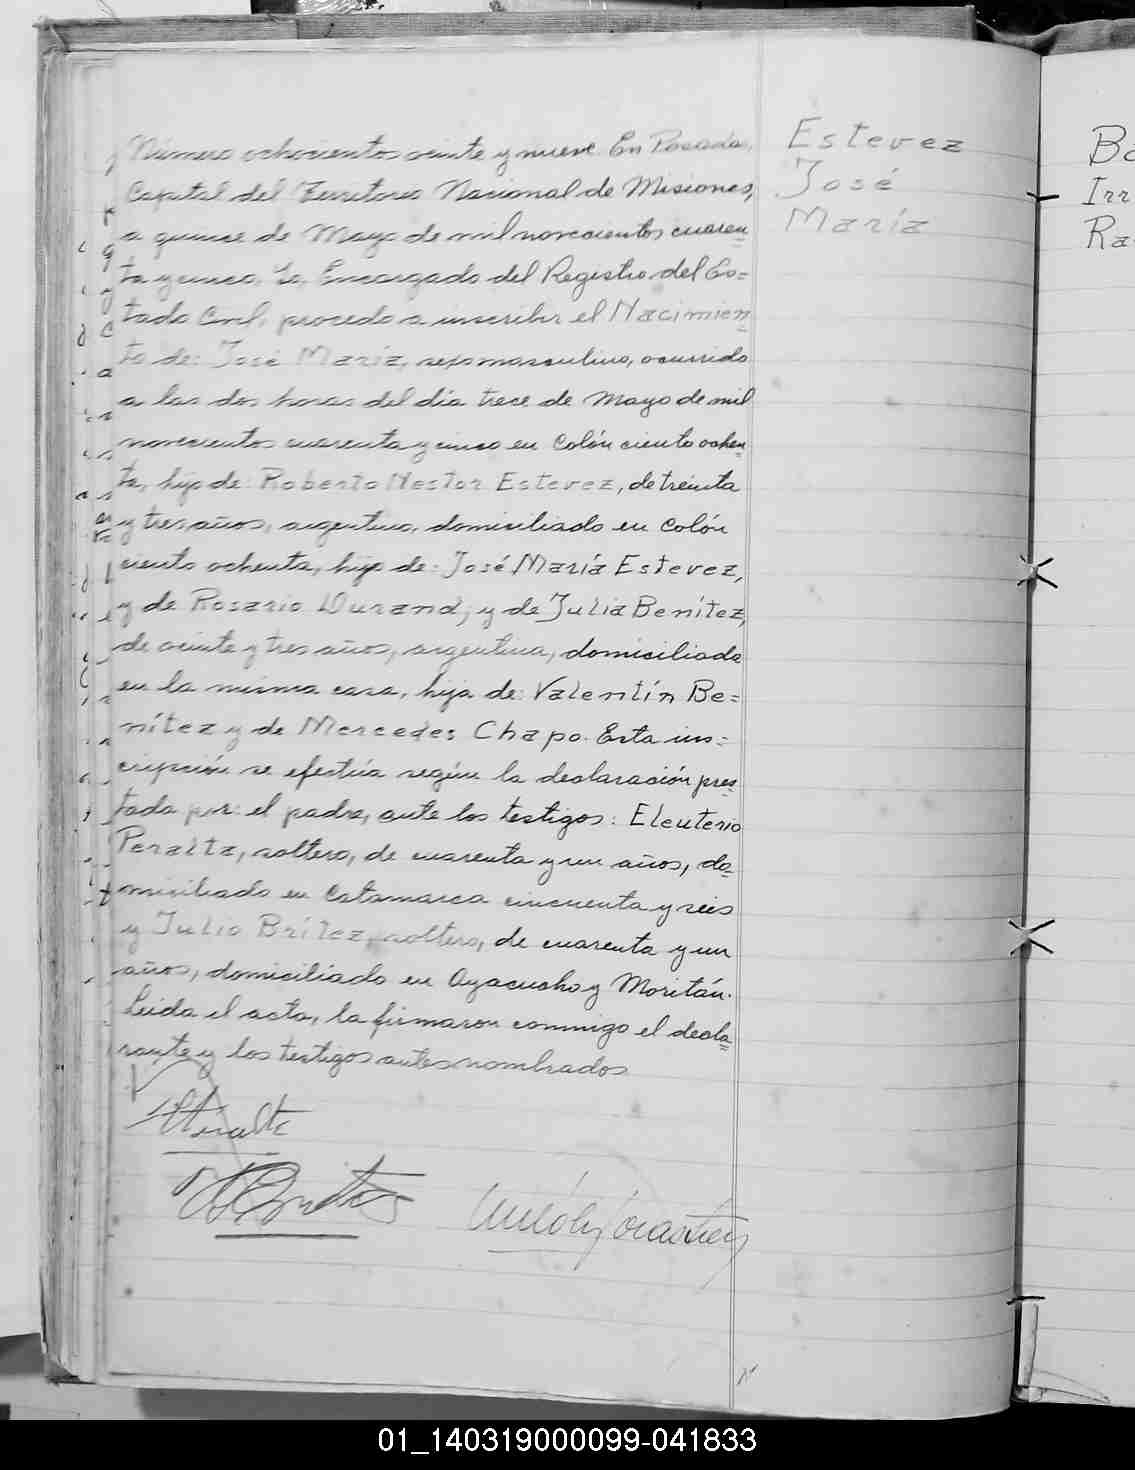 Número ochocientos veinte y nueve. En Posadas,
Capital del Territorio Nacional de Misiones,
a quince de Mayo de mil novecientos cuaren
ta y cinco. Yo, Encargado del Registro del Es=
tado Civil, procedo a inscribir el Nacimien
to de: José María, sexo masculino, ocurrido
a las dos horas del día trece de Mayo de mil
novecientos cuarenta y cinco en Colón ciento ochen
ta, hijo de: Roberto Nestor Estevez, de treinta
y tres años, argentino, domiciliado en Colón
ciento ochenta, hijo de: José María Estevez,
y de Rosario Durand, y de Julia Benítez,
de veinte y tres años, argentina, domiciliada
en la misma casa, hija de: Valentín Be=
nítez y de Mercedes Chapo. Esta ins=
cripción se efectúa según la declaración pres
tada por: el padre, ante los testigos: Eleuterio
Peralta, soltero, de cuarenta y un años, do=
miciliado en Catamarca cincuenta y seis
y Julio Brítez, soltero, de cuarenta y un
años, domiciliado en Ayacucho y Moritán.
Leida el acta, la firmaron conmigo el decla
rante y los testigos antes nombrados
Estevez
José
María
Irr
01_140319000099-041833